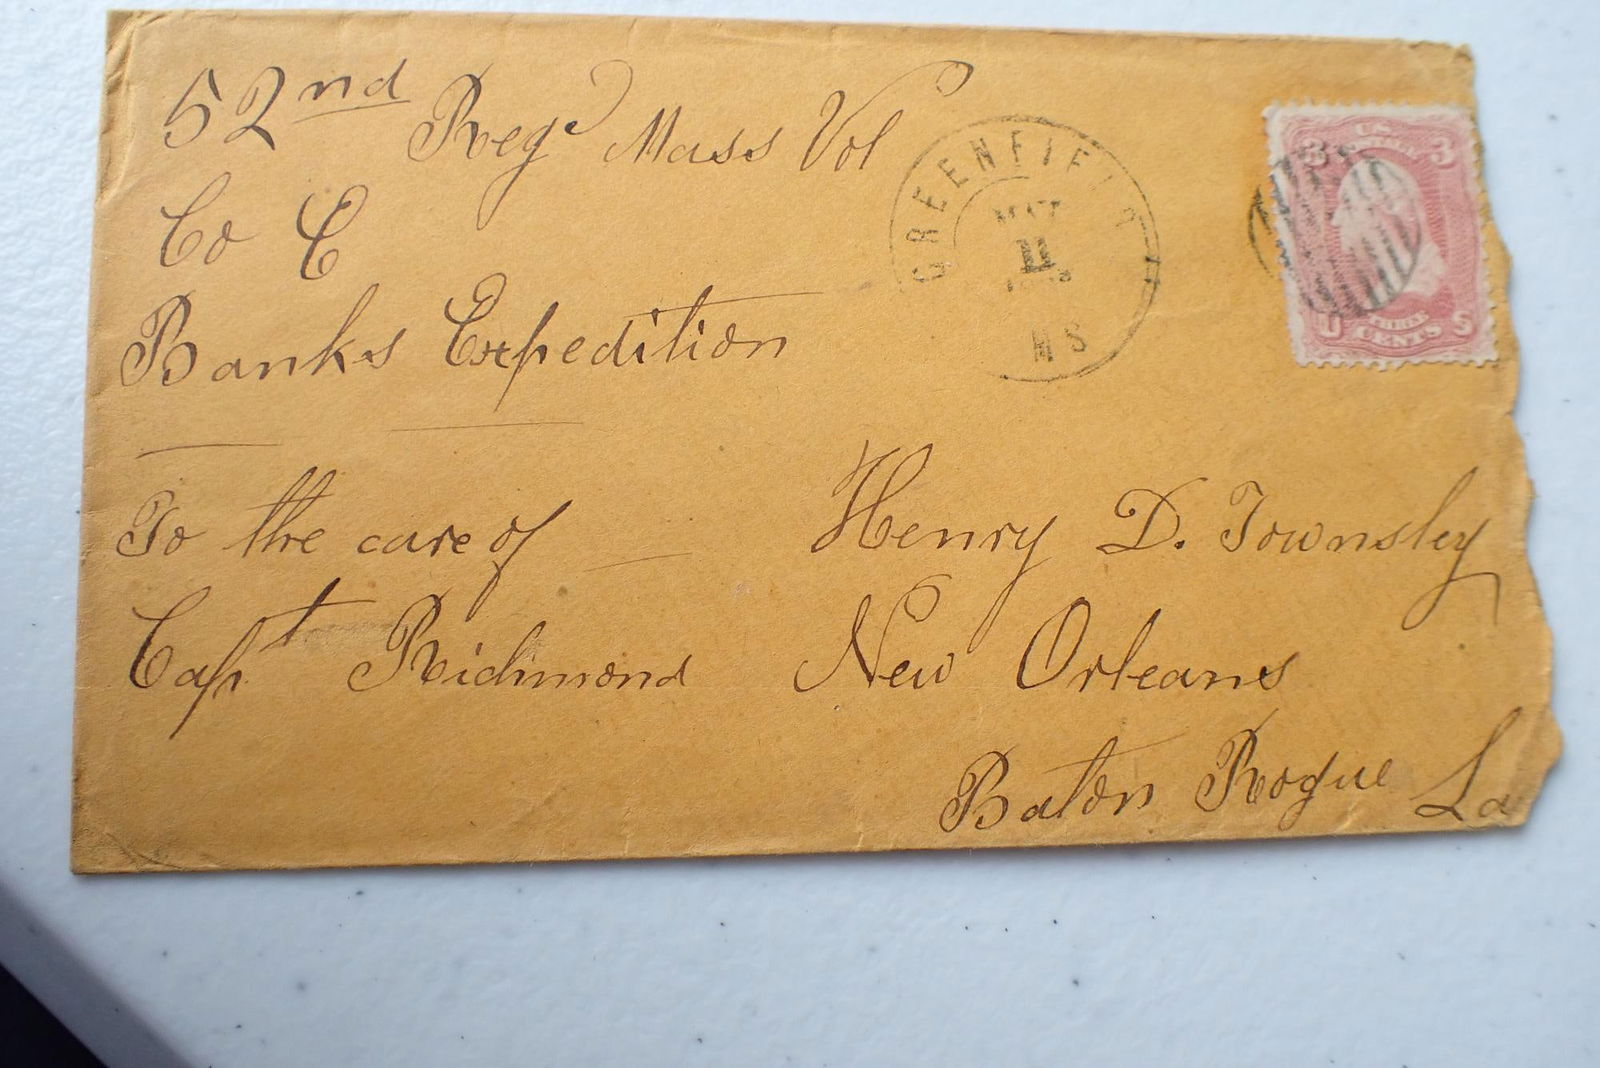 52nd Reg Mass Vol
Co C
Banks Expedition
To the care of
Capt Richmond
Henry D. Townsley
New Orleans
Baton Rogue La
GREENFIELD
11
MS
U.S. POSTAGE
3 3
U S
THREE
CENTS